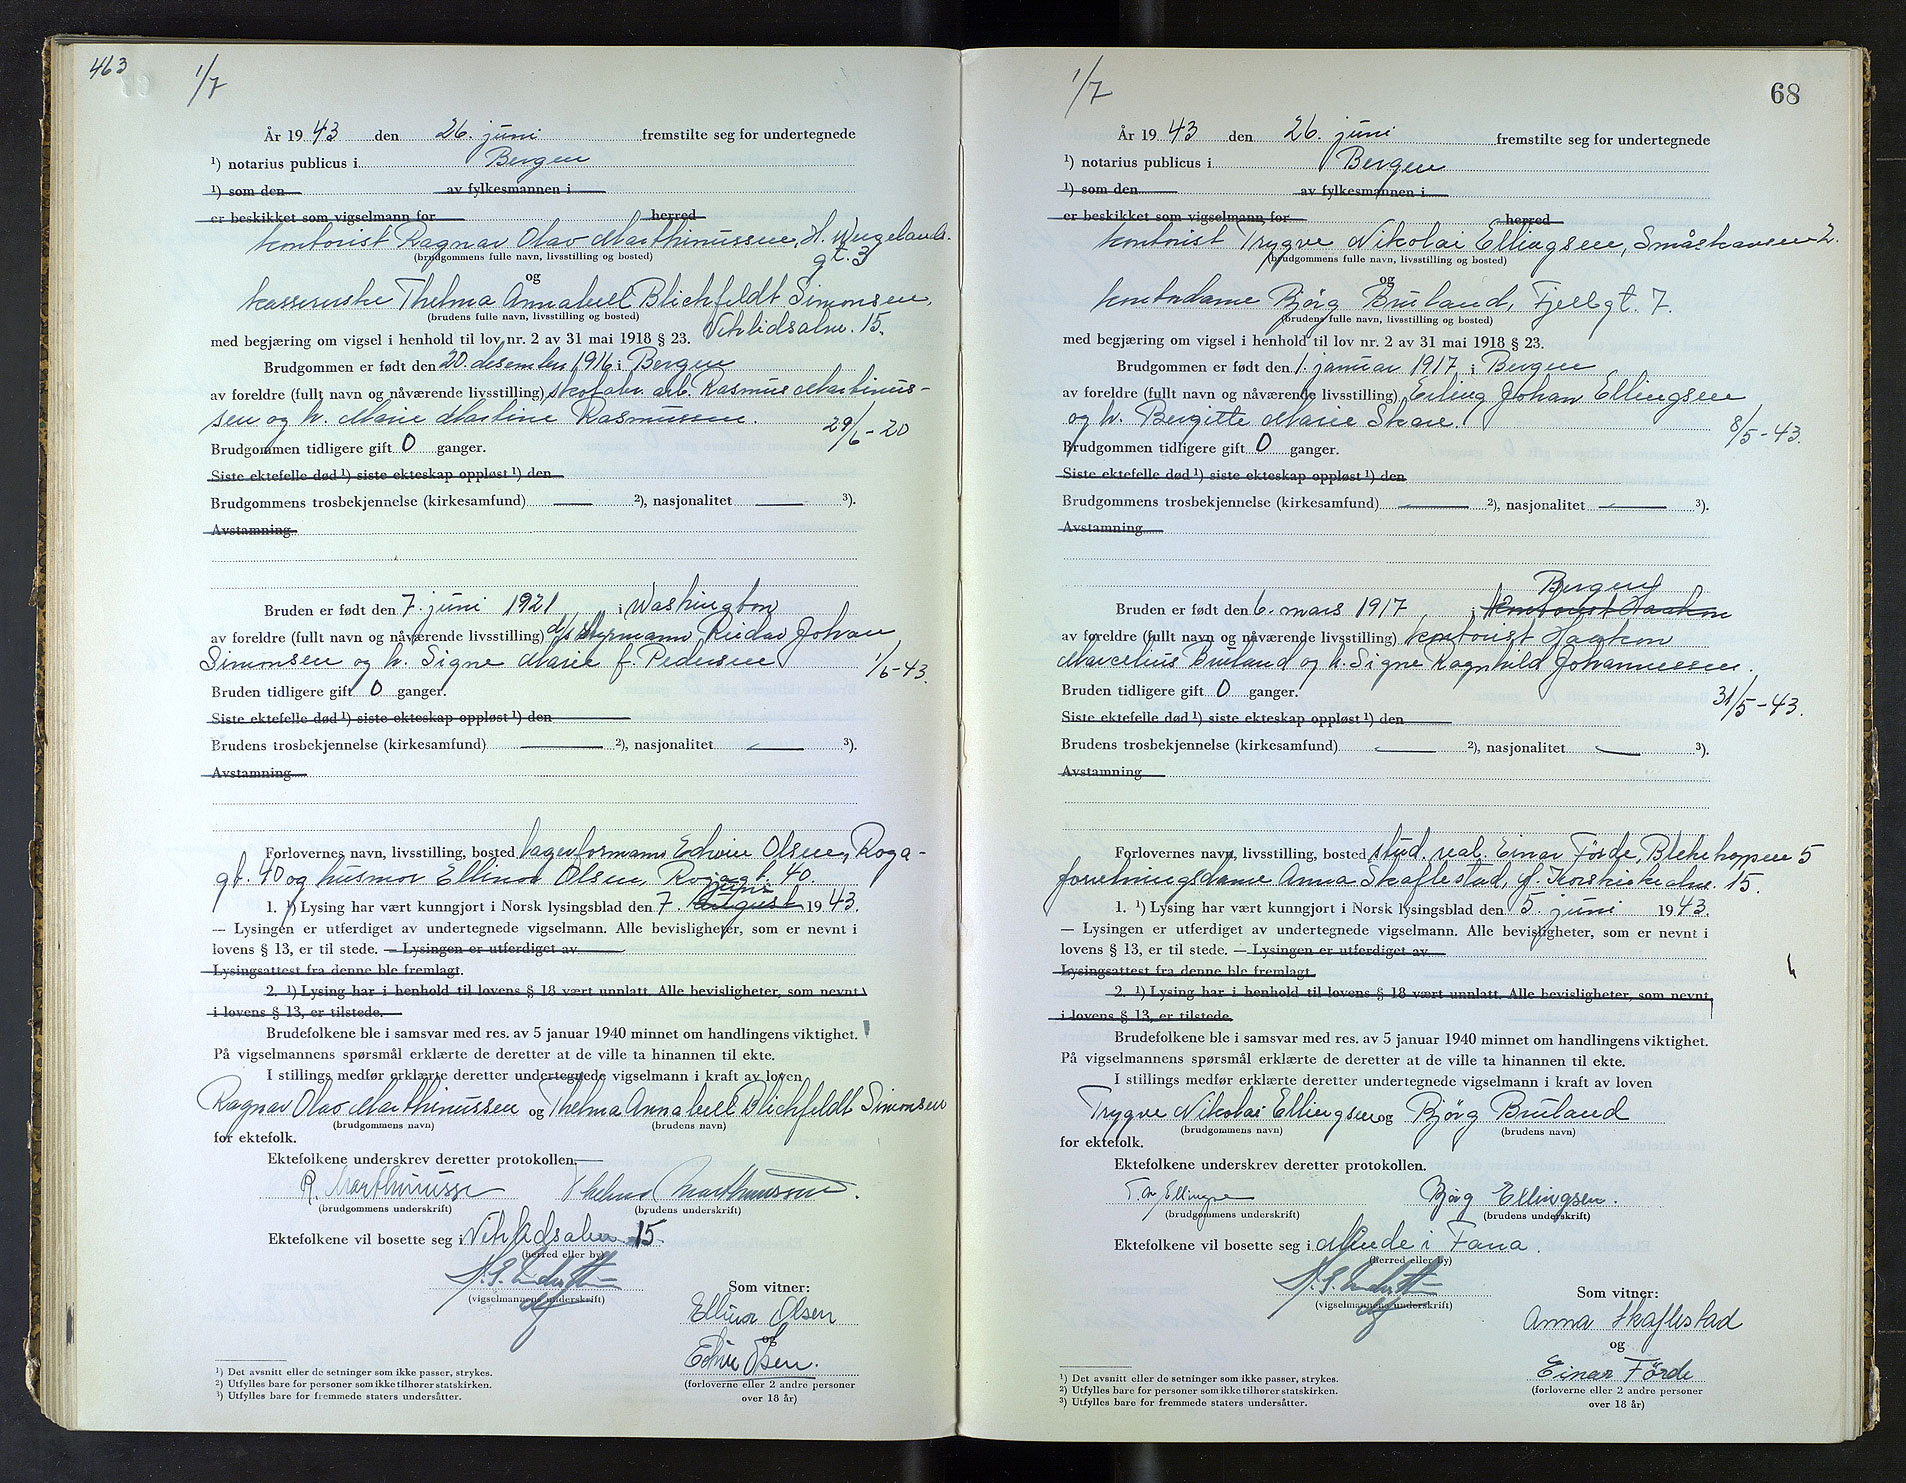 463
1/7
År 19 43 den 26. juni fremstilte seg for undertegnede
¹) notarius publicus i Bergen
¹) som den av fylkesmannen i
er beskikket som vigselmann for herred
kontorist Ragnar Olav Marthinussen, H. Wergelands
gt. 3
(brudgommens fulle navn, livsstilling og bosted)
og
kassererske Thelma Annabell Blichfeldt Simonsen,
(brudens fulle navn, livsstilling og bosted)
Vitalidsalm. 15.
med begjæring om vigsel i henhold til lov nr. 2 av 31 mai 1918 § 23.
Brudgommen er født den 20. desember 1916 i Bergen
av foreldre (fullt navn og nåværende livsstilling) skofabr. arb. Rasmus Martinus-
sen og h. Marie Martine Rasmussen.
29/6-20
Brudgommen tidligere gift 0 ganger.
Siste ektefelle død ¹) siste ekteskap oppløst ¹) den
Brudgommens trosbekjennelse (kirkesamfund) — ²), nasjonalitet — ³).
Avstamning
Bruden er født den 7. juni 1921 i Washington
av foreldre (fullt navn og nåværende livsstilling) d/s styrmann Reidar Johan
Simonsen og h. Signe Marie f. Pedersen
1/6-43.
Bruden tidligere gift 0 ganger.
Siste ektefelle død ¹) siste ekteskap oppløst ¹) den
Brudens trosbekjennelse (kirkesamfund) — ²), nasjonalitet — ³).
Avstamning
Forlovernes navn, livsstilling, bosted lagerformann Edwin Olsen, Roga-
gt. 40 og husmor Ellinor Olsen, Rogagt. 40.
juni
1. ¹) Lysing har vært kunngjort i Norsk lysingsblad den 7. august 19 43.
— Lysingen er utferdiget av undertegnede vigselmann. Alle bevisligheter, som er nevnt i
lovens § 13, er til stede. — Lysingen er utferdiget av
Lysingsattest fra denne ble fremlagt.
2. ¹) Lysing har i henhold til lovens § 18 vært unnlatt. Alle bevisligheter, som nevnt
i lovens § 13, er tilstede.
Brudefolkene ble i samsvar med res. av 5 januar 1940 minnet om handlingens viktighet.
På vigselmannens spørsmål erklærte de deretter at de ville ta hinannen til ekte.
I stillings medfør erklærte deretter undertegnede vigselmann i kraft av loven
Ragnar Olav Marthinussen og Thelma Annabell Blichfeldt Simonsen
(brudgommens navn) (brudens navn)
for ektefolk.
Ektefolkene underskrev deretter protokollen.
R. Marthinusse Thelma Marthinussen.
(brudgommens underskrift) (brudens underskrift)
Ektefolkene vil bosette seg i Vitalidsalm 15
(herred eller by)
(vigselmannens underskrift)
Som vitner:
Ellinor Olsen
og
Edwin Olsen.
(forloverne eller 2 andre personer
over 18 år)
¹) Det avsnitt eller de setninger som ikke passer, strykes.
²) Utfylles bare for personer som ikke tilhører statskirken.
³) Utfylles bare for fremmede staters undersåtter.
1/7
68
År 19 43 den 26. juni fremstilte seg for undertegnede
¹) notarius publicus i Bergen
¹) som den av fylkesmannen i
er beskikket som vigselmann for herred
kontorist Trygve Nikolai Ellingsen, Småskansen 2.
(brudgommens fulle navn, livsstilling og bosted)
og
kontordame Bjørg Bruland, Fjellgt. 7.
(brudens fulle navn, livsstilling og bosted)
med begjæring om vigsel i henhold til lov nr. 2 av 31 mai 1918 § 23.
Brudgommen er født den 1. januar 1917 i Bergen
av foreldre (fullt navn og nåværende livsstilling) Erling Johan Ellingsen
og h. Bergitte Marie Skare.
8/5-43.
Brudgommen tidligere gift 0 ganger.
Siste ektefelle død ¹) siste ekteskap oppløst ¹) den
Brudgommens trosbekjennelse (kirkesamfund) — ²), nasjonalitet — ³).
Avstamning
Bergen
Bruden er født den 6. mars 1917 i kontorist Haakon
av foreldre (fullt navn og nåværende livsstilling) kontorist Haakon
Marcelius Bruland og h. Signe Ragnhild Johannessen.
31/5-43.
Bruden tidligere gift 0 ganger.
Siste ektefelle død ¹) siste ekteskap oppløst ¹) den
Brudens trosbekjennelse (kirkesamfund) — ²), nasjonalitet — ³).
Avstamning
Forlovernes navn, livsstilling, bosted stud. real. Einar Förde, Blekehoppen 5
forretningsdame Anna Skaflestad, Korskirkealm. 15.
1. ¹) Lysing har vært kunngjort i Norsk lysingsblad den 5. juni 19 43.
— Lysingen er utferdiget av undertegnede vigselmann. Alle bevisligheter, som er nevnt i
lovens § 13, er til stede. — Lysingen er utferdiget av
Lysingsattest fra denne ble fremlagt.
2. ¹) Lysing har i henhold til lovens § 18 vært unnlatt. Alle bevisligheter, som nevnt
i lovens § 13, er tilstede.
Brudefolkene ble i samsvar med res. av 5 januar 1940 minnet om handlingens viktighet.
På vigselmannens spørsmål erklærte de deretter at de ville ta hinannen til ekte.
I stillings medfør erklærte deretter undertegnede vigselmann i kraft av loven
Trygve Nikolai Ellingsen og Bjørg Bruland
(brudgommens navn) (brudens navn)
for ektefolk.
Ektefolkene underskrev deretter protokollen.
T. N. Ellingsen Bjørg Ellingsen.
(brudgommens underskrift) (brudens underskrift)
Ektefolkene vil bosette seg i Minde i Fana.
(herred eller by)
(vigselmannens underskrift)
Som vitner:
Anna Skaflestad
og
Einar Förde
(forloverne eller 2 andre personer
over 18 år)
¹) Det avsnitt eller de setninger som ikke passer, strykes.
²) Utfylles bare for personer som ikke tilhører statskirken.
³) Utfylles bare for fremmede staters undersåtter.